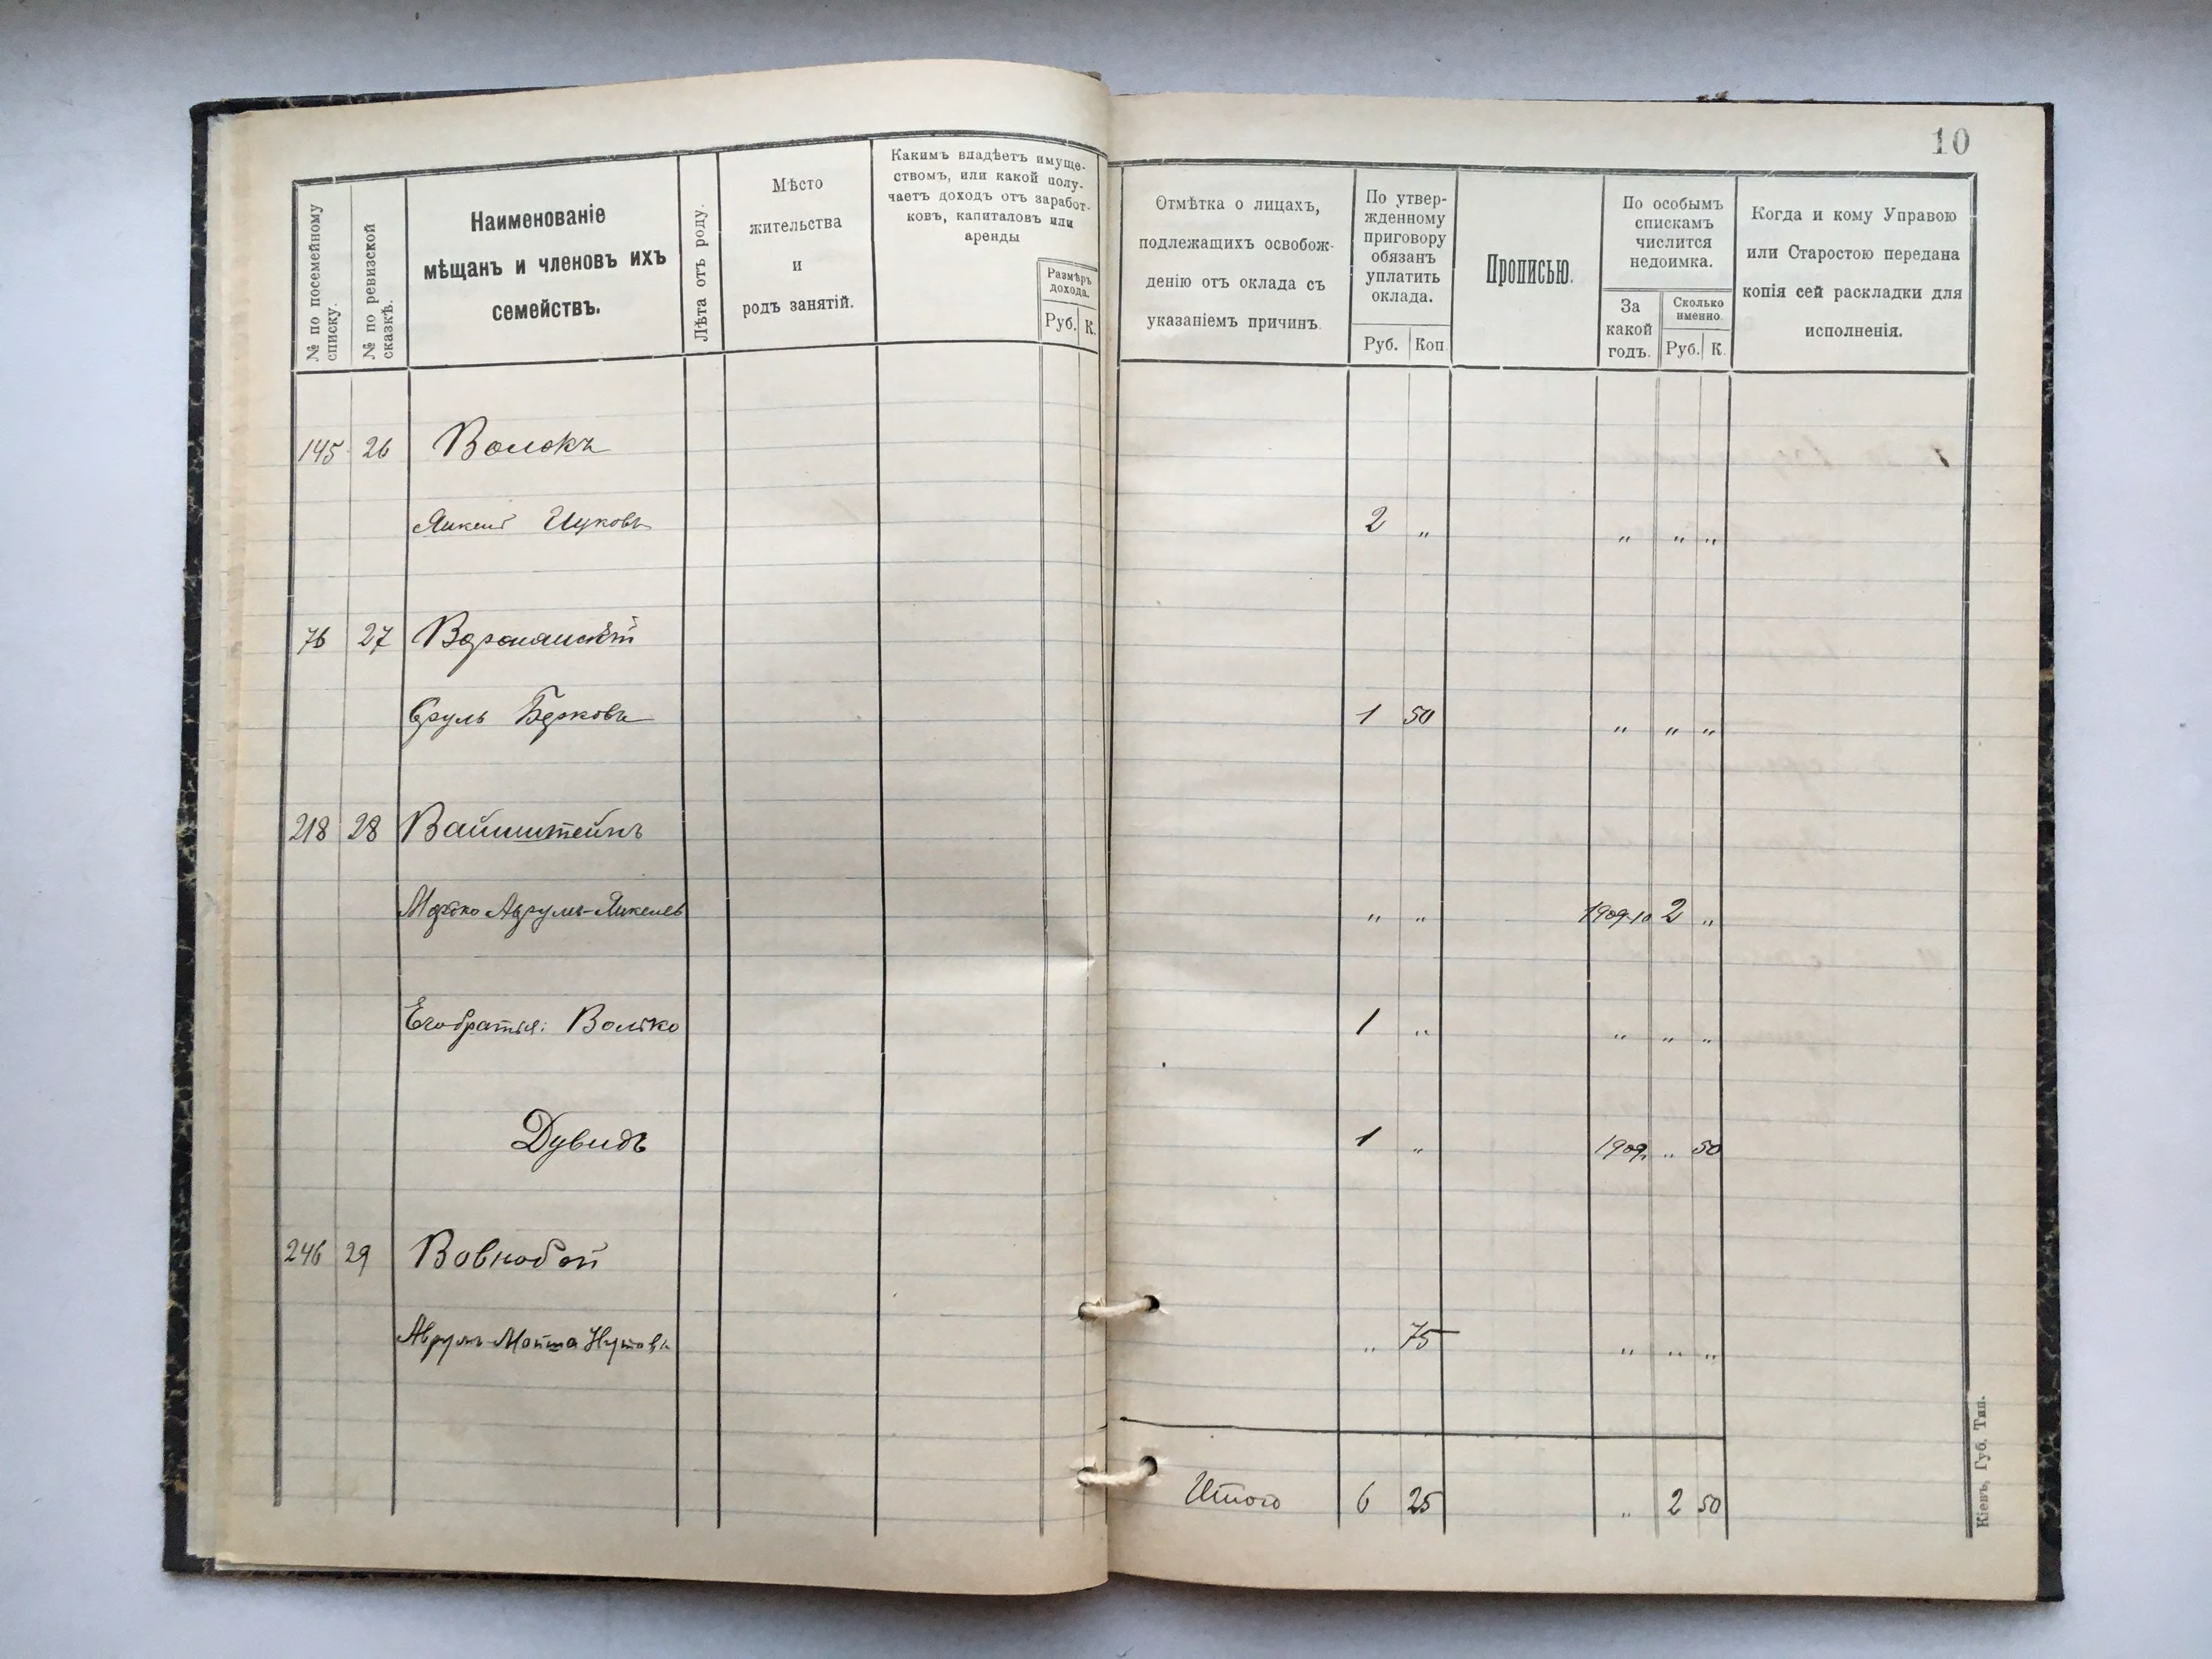 10
№ по посемейному
списку.
№ по ревизской
сказкѣ.
Наименованіе
мѣщанъ и членовъ ихъ
семействъ.
Лѣта отъ роду.
Мѣсто
жительства
и
родъ занятій.
Какимъ владѣетъ имуще-
ствомъ, или какой полу-
чаетъ доходъ отъ заработ-
ковъ, капиталовъ или
аренды
Размѣръ
дохода.
Руб. К.
Отмѣтка о лицахъ,
подлежащихъ освобож-
денію отъ оклада съ
указаніемъ причинъ.
По утвер-
жденному
приговору
обязанъ
уплатить
оклада.
Руб. Коп.
Прописью.
По особымъ
спискамъ
числится
недоимка.
За
какой
годъ.
Сколько
именно.
Руб. К.
Когда и кому Управою
или Старостою передана
копія сей раскладки для
исполненія.
145 26 Волокъ
Янкель Ицковъ 2 „ „ „ „
76 27
Сруль Берковъ 1 50 „ „ „
218 28 Вайнштейнъ
Мошко Аврумъ-Янкелев „ „ 1909-10 2 „
Его братья: Волько 1 „ „ „ „
Дувидъ 1 „ 1909. „ 50
246 29 Вовнобой
Аврумъ-Мотта Нутовъ „ 75 „ „ „
Итого 6 25 „ 2 50
Кіевъ, Губ. Тип.